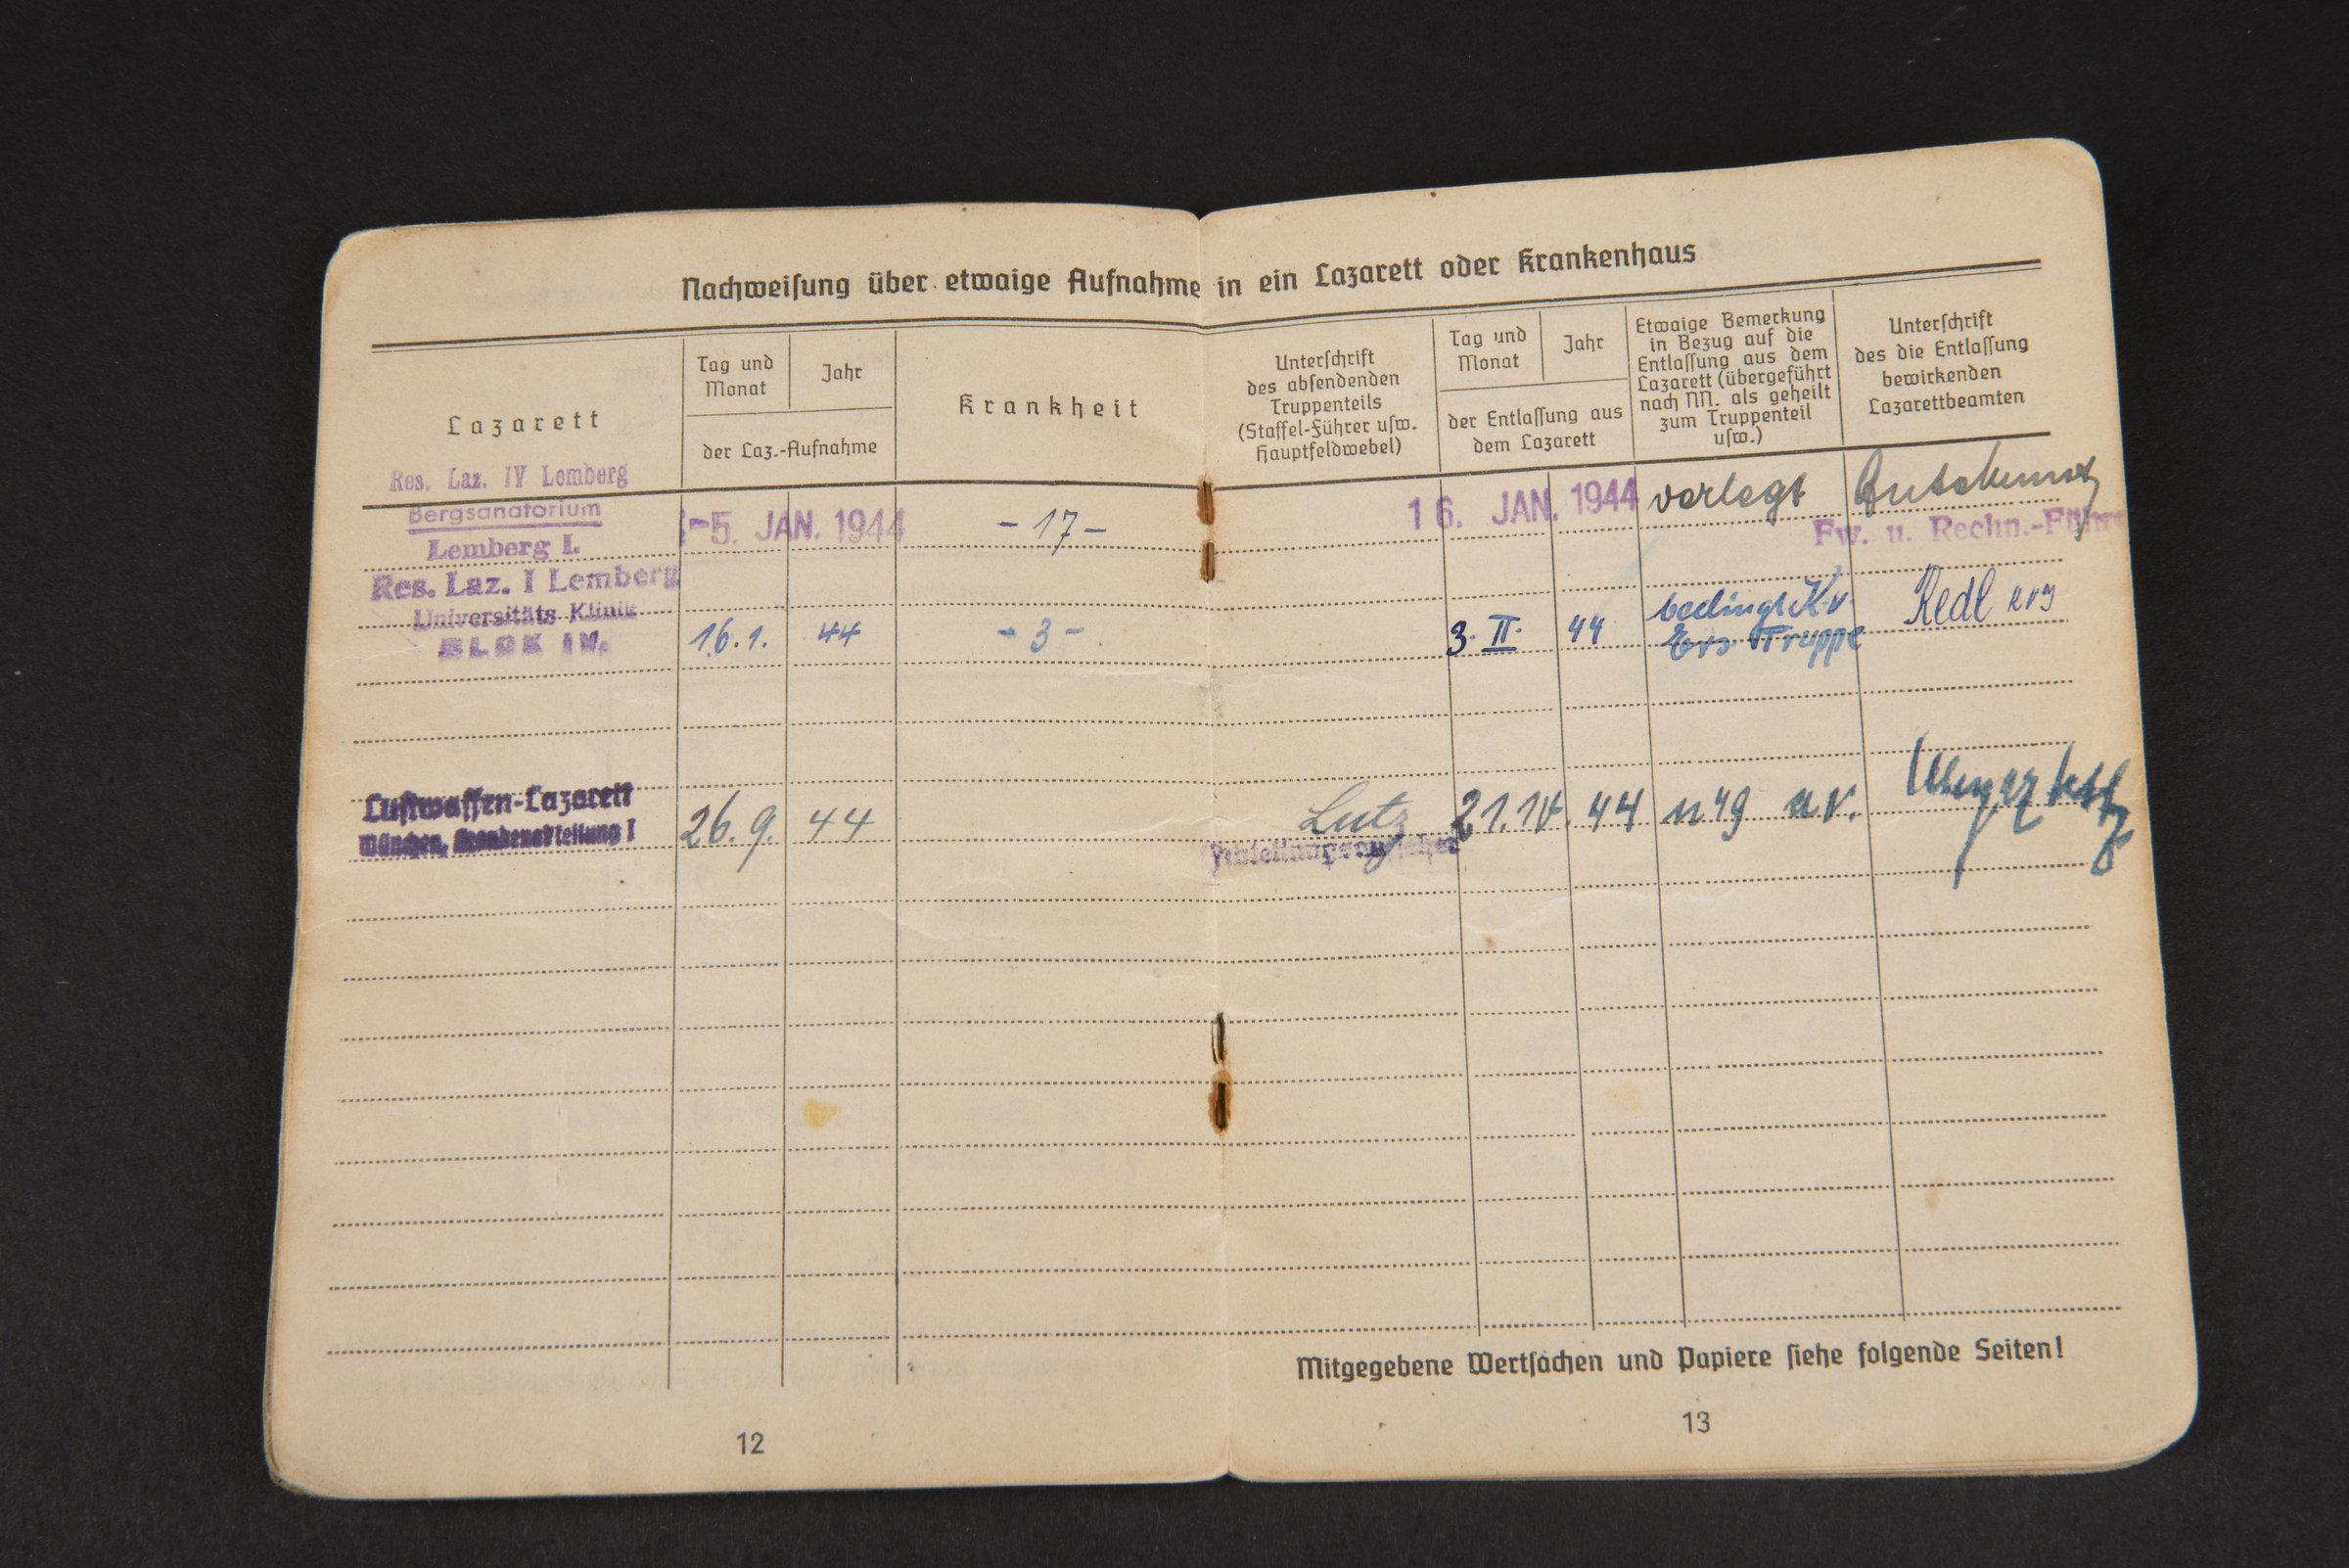 Nachweiſung über etwaige Aufnahme in ein Lazarett oder Krankenhaus
Lazarett
Tag und
Monat
Jahr
der Laz.-Aufnahme
Krankheit
Unterſchrift
des abſendenden
Truppenteils
(Staffel-Führer uſw.
Hauptfeldwebel)
Tag und
Monat
Jahr
der Entlaſſung aus
dem Lazarett
Etwaige Bemerkung
in Bezug auf die
Entlaſſung aus dem
Lazarett (übergeführt
nach NN. als geheilt
zum Truppenteil
uſw.)
Unterſchrift
des die Entlaſſung
bewirkenden
Lazarettbeamten
Res. Laz. IV Lemberg
Bergsanatorium
Lemberg I.
-5. JAN. 1944
- 17 -
16. JAN. 1944
verlegt
Fw. u. Rechn.-Führe
Res. Laz. I Lemberg
Universitäts Klinik
BLOK IV.
16.1. 44
- 3 -
3. II. 44
bedingt Kv.
Ers. Truppe
Redl
Luftwaffen-Lazarett
München, Krankenabteilung I
26. 9. 44
Lutz
44
Mitgegebene Wertſachen und Papiere ſiehe folgende Seiten!
12
13